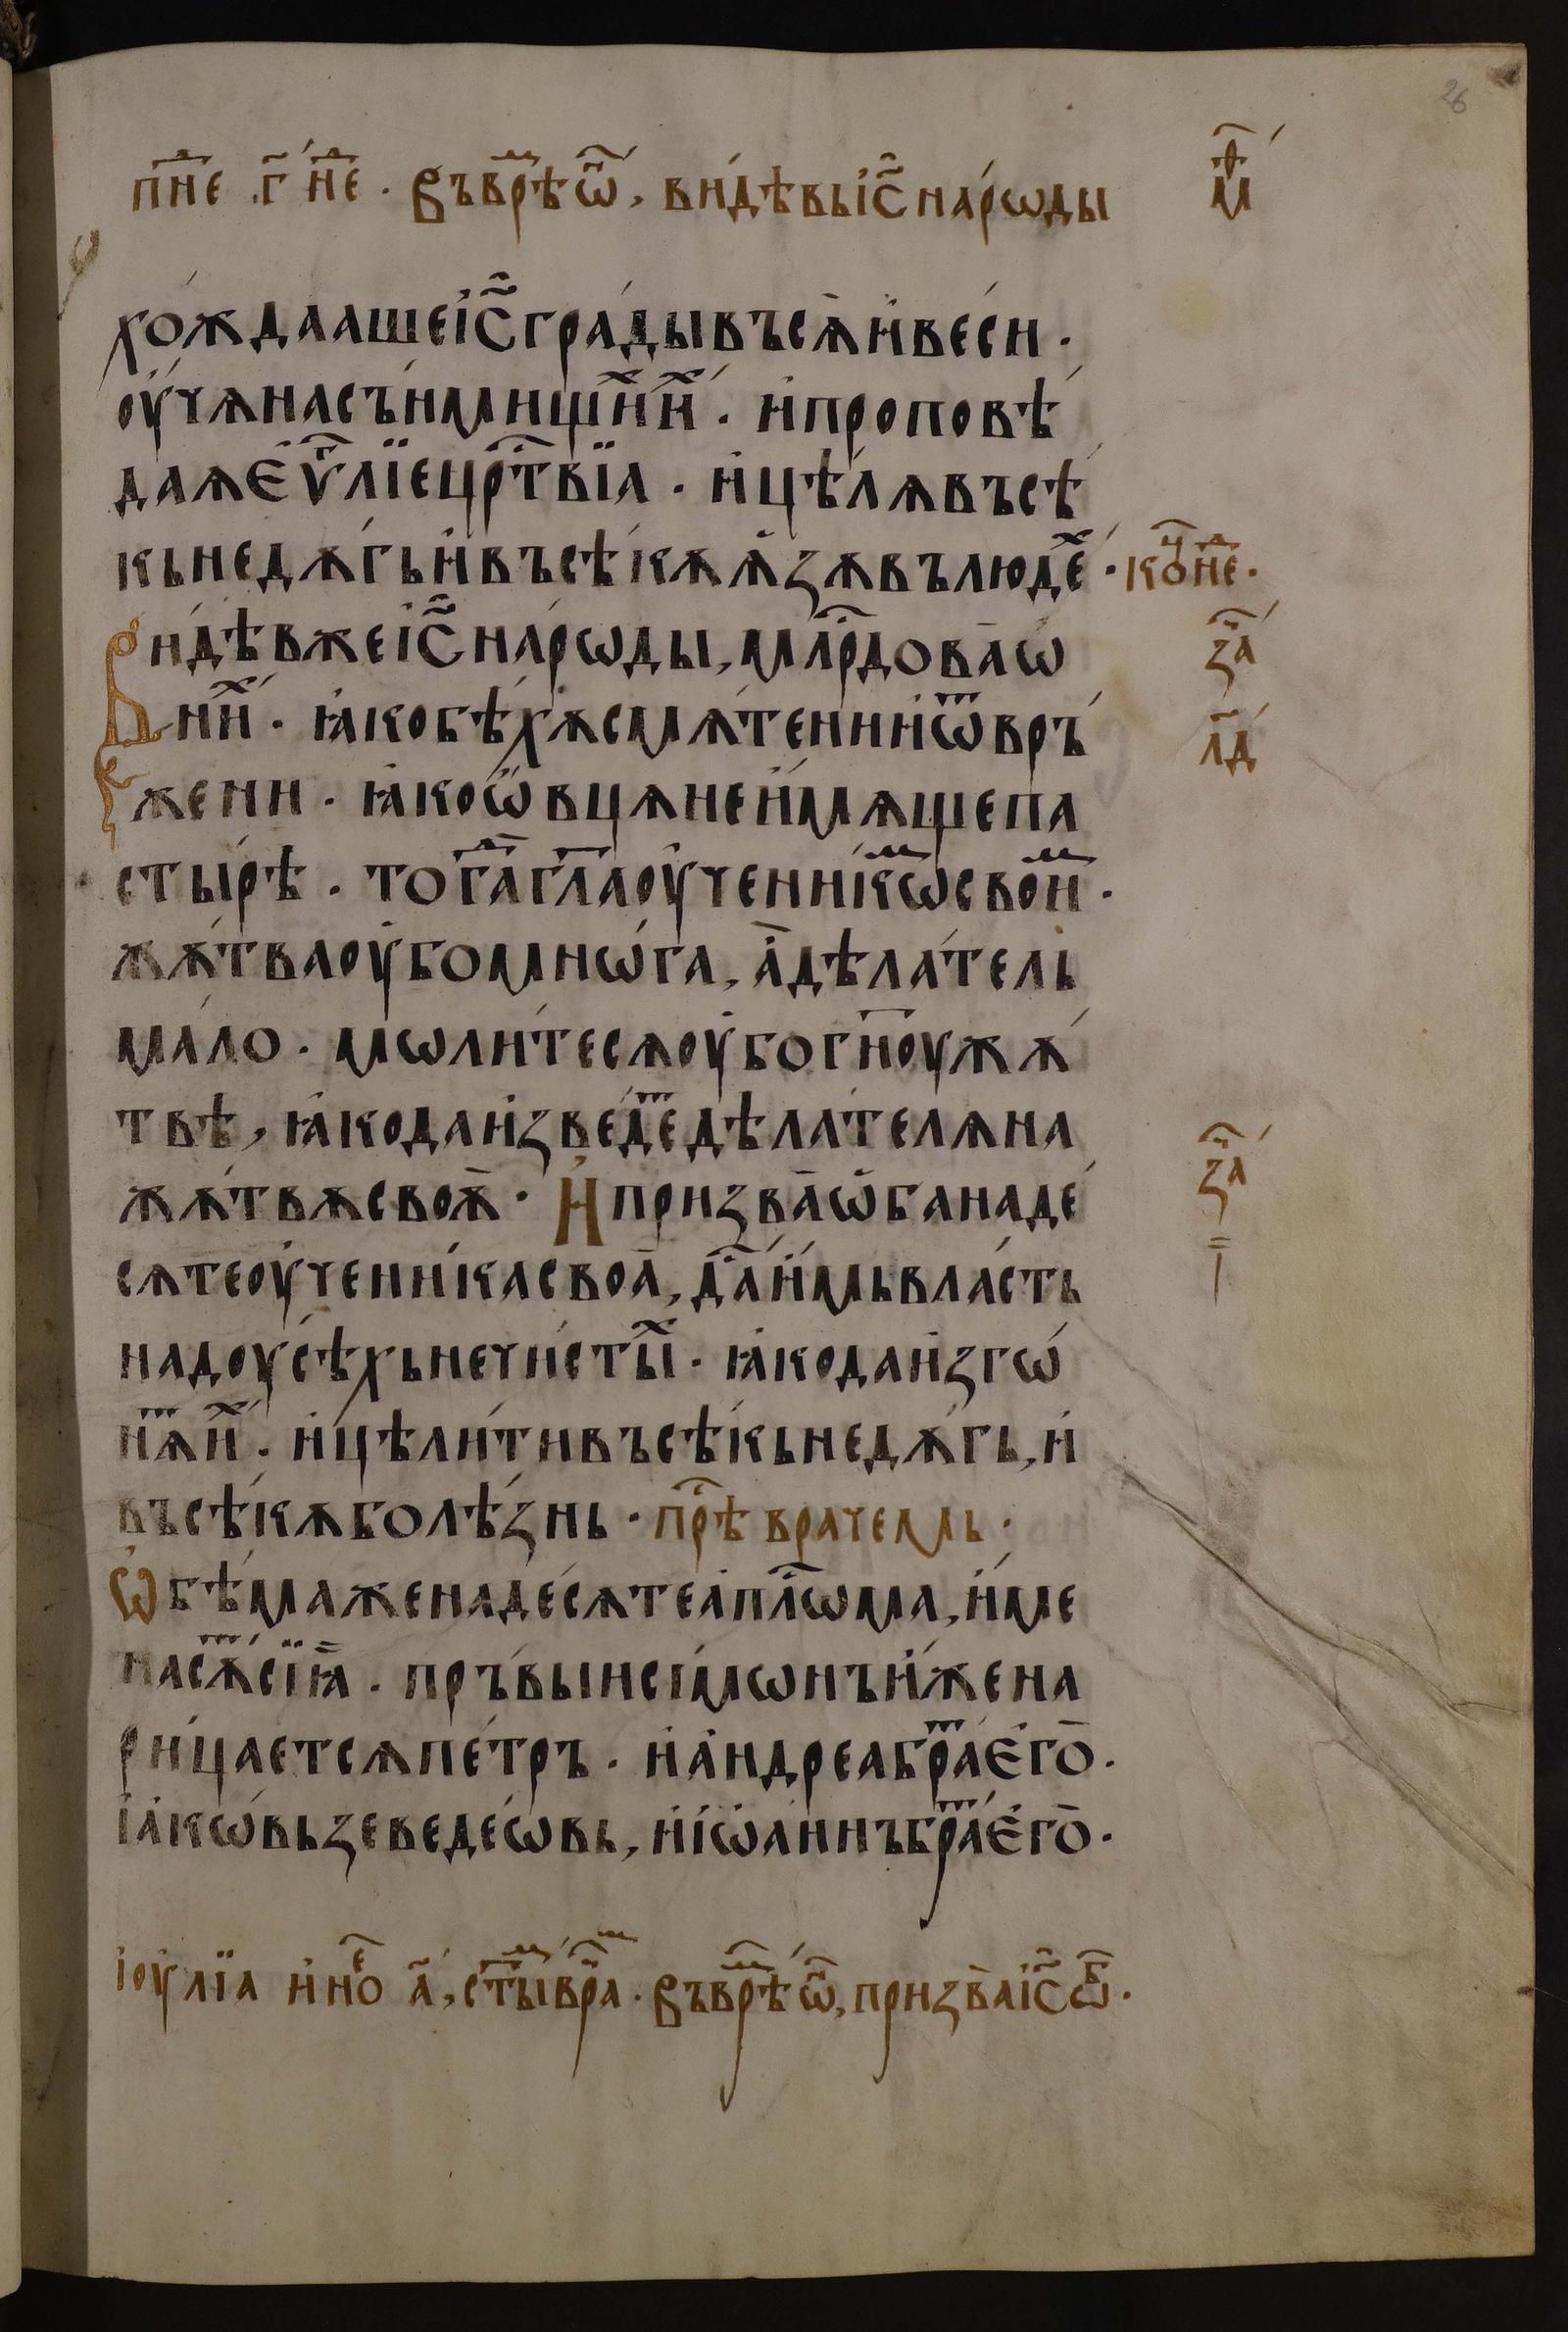 26
пн҇ⷣе .г҃. нⷣе · Въ врѣⷨ ѡ҆́н꙽ , ви́дѣвь і҆с҃ наро́ды
маⷴ
хо́ждааше і҆с҃ гра́ды въсѧ̀ и҆ве́си ·
оу҆чѧ на съ́нмищиⷯ иⷯ · и҆ проповѣ́
даѧ є҆ѵⷢ҇лїе црⷭ҇твїа · и҆ цѣ́лѧ въсѣ́
кь недѫ́гь и҆ въсѣ́кѫ ѧ҆́зѫ въ лю́деⷯ · коⷰ҇нⷣе ·
Ви́дѣв же і҆с҃ наро́ды , млⷭ҇рдова ѡ҆
ниⷯ · ꙗ҆́ко бѣ́хѫ смѧ́тенни и҆ ѿвръ́
жени · ꙗ҆́ко ѡ҆́вцѧ не и҆мѫ́щѧ па
сты́рѣ · тогⷣа гл҃а оу҆ченикѡⷨ свои́ⷨ ·
жѧ́тва оу҆́бо мнѡ́га , а҆ дѣ́латель
ма́ло · мѡли́те сѧ оу҆́бо гн҃оу жѧ́
твѣ , ꙗ҆́ко да и҆зведеⷮ дѣ́лателѧ на
жѧ́твѫ своѫ̀ · И҆ призва̀ ѡ҆ба на де́
сѧте оу҆ченика своа̀ , даⷭ҇ и҆́мь вла́сть
на доу́сѣхь нечи́стыⷯ · ꙗ҆́ко да и҆зго́
нѧⷮ иⷯ · и҆ цѣли́ти въсѣ́кь недѫ́гь , и҆
въсѣ́кѫ болѣ́знь · прⷣѣ врачемь ·
Ѡ҆бѣ́ма же на де́сѧте а҆пⷭ҇лѡма , и҆ме
на сѫⷮ сїꙗ̀ · пръ́выи сі́мѡнъ и҆́же на
рица́ет сѧ пе́тръ · и҆ а҆ндреа браⷮ є҆го̀ ·
і҆а́кѡвь зеведе́ѡвь , и҆ і҆ѡ҆аннъ браⷮ є҆го̀ ·
заⷱ҇
л҃д
заⷱ҇
і҃
і҆оу́лїа и҆ ноеⷨ а҃ , стыⷨ враⷱ҇ · Въ врѣⷨ ѡ҆́н꙽ , призва і҆с҃ ѡⷠ ·